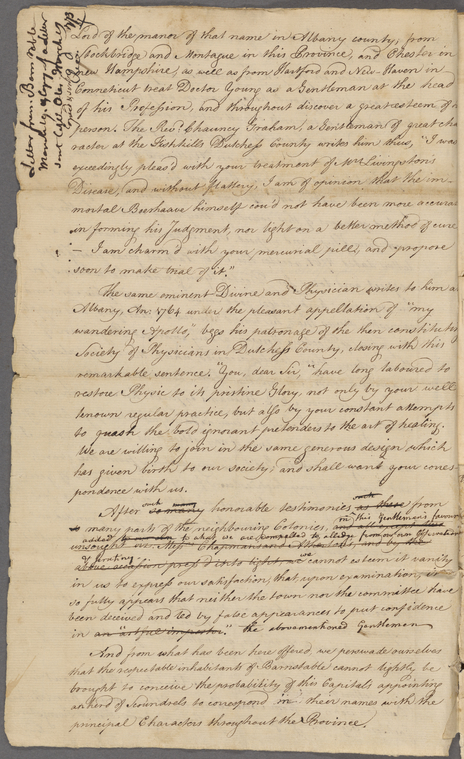 Letter from Barnstable
Lord of the manor of that name in Albany county; from
Stockbridge and Montague in this Province, and Chester in
New Hampshire, as well as from Hartford and New-Haven in
Connecticut treat Doctor Young as a Gentleman at the head
of his Profession, and throughout discover a great esteem of
person. The Revd. Chauncy Graham, a Gentleman of great cha
racter at the Fishkills Dutchess County writes him thus, "I was
exceedingly pleas'd with your treatment of Mr. Livingston's
Disease, and without flattery, I am of opinion that the im-
mortal Boerhaave himself cou'd not have been more accurate
in forming his Judgment, nor light on a better method of cure
— I am charm'd with your mercurial pill, and propose
soon to make trial of it."
The same eminent Divine and Physician writes to him a
Albany, An: 1764 under the pleasant appellation of "my
wandering Apollo," begs his patronage of the then constituted
Society of Physicians in Dutchess County, closing with this
remarkable sentence. "You, dear Sir, "have long laboured to
restore Physic to its pristine Glory, not only by your well
known regular practice, but also by your constant attempts
to quash the bold ignorant pretenders to the art of healing.
We are willing to join in the same generous design which
has given birth to our society; and shall want your corres-
pondence with us.
such many
After so many honorable testimonies as these from
so many parts of the neighbouring Colonies,
in this Gentleman's favour
added to what we are compelled to alledge from our
unsought
cannot esteem it vanity
in us to express our satisfaction, that, upon examination, it
so fully appears that neither the town nor the committee have
been deceived and led by false appearances to put confidence
in an "artful impostor." the abovementioned Gentleman
And from what has been here offered, we perswade ourselves
that the respectable inhabitants of Barnstable cannot lightly be
brought to conceive the probability of this Capitals appointing
an herd of Scoundrels to correspond in their names with the
principal Characters throughout the Province.